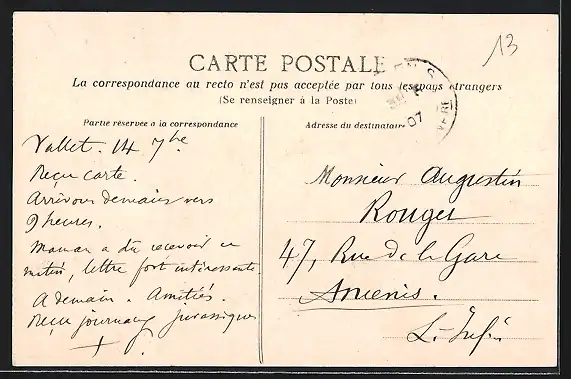 13
CARTE POSTALE
La correspondance au recto n'est pas acceptée par tous les pays étrangers
(Se renseigner à la Poste)
Partie réservée à la correspondance
Adresse du destinataire
07
Vallet. 14 7bre
Reçu carte.
Arriverons demain vers
9 heures.
Maman a dû recevoir ce
matin, lettre fort intéressante
A demain. Amitiés.
Reçu journaux jurassiques
Monsieur Augustin
Rouger
47, Rue de la Gare
Ancenis.
L.-Infre